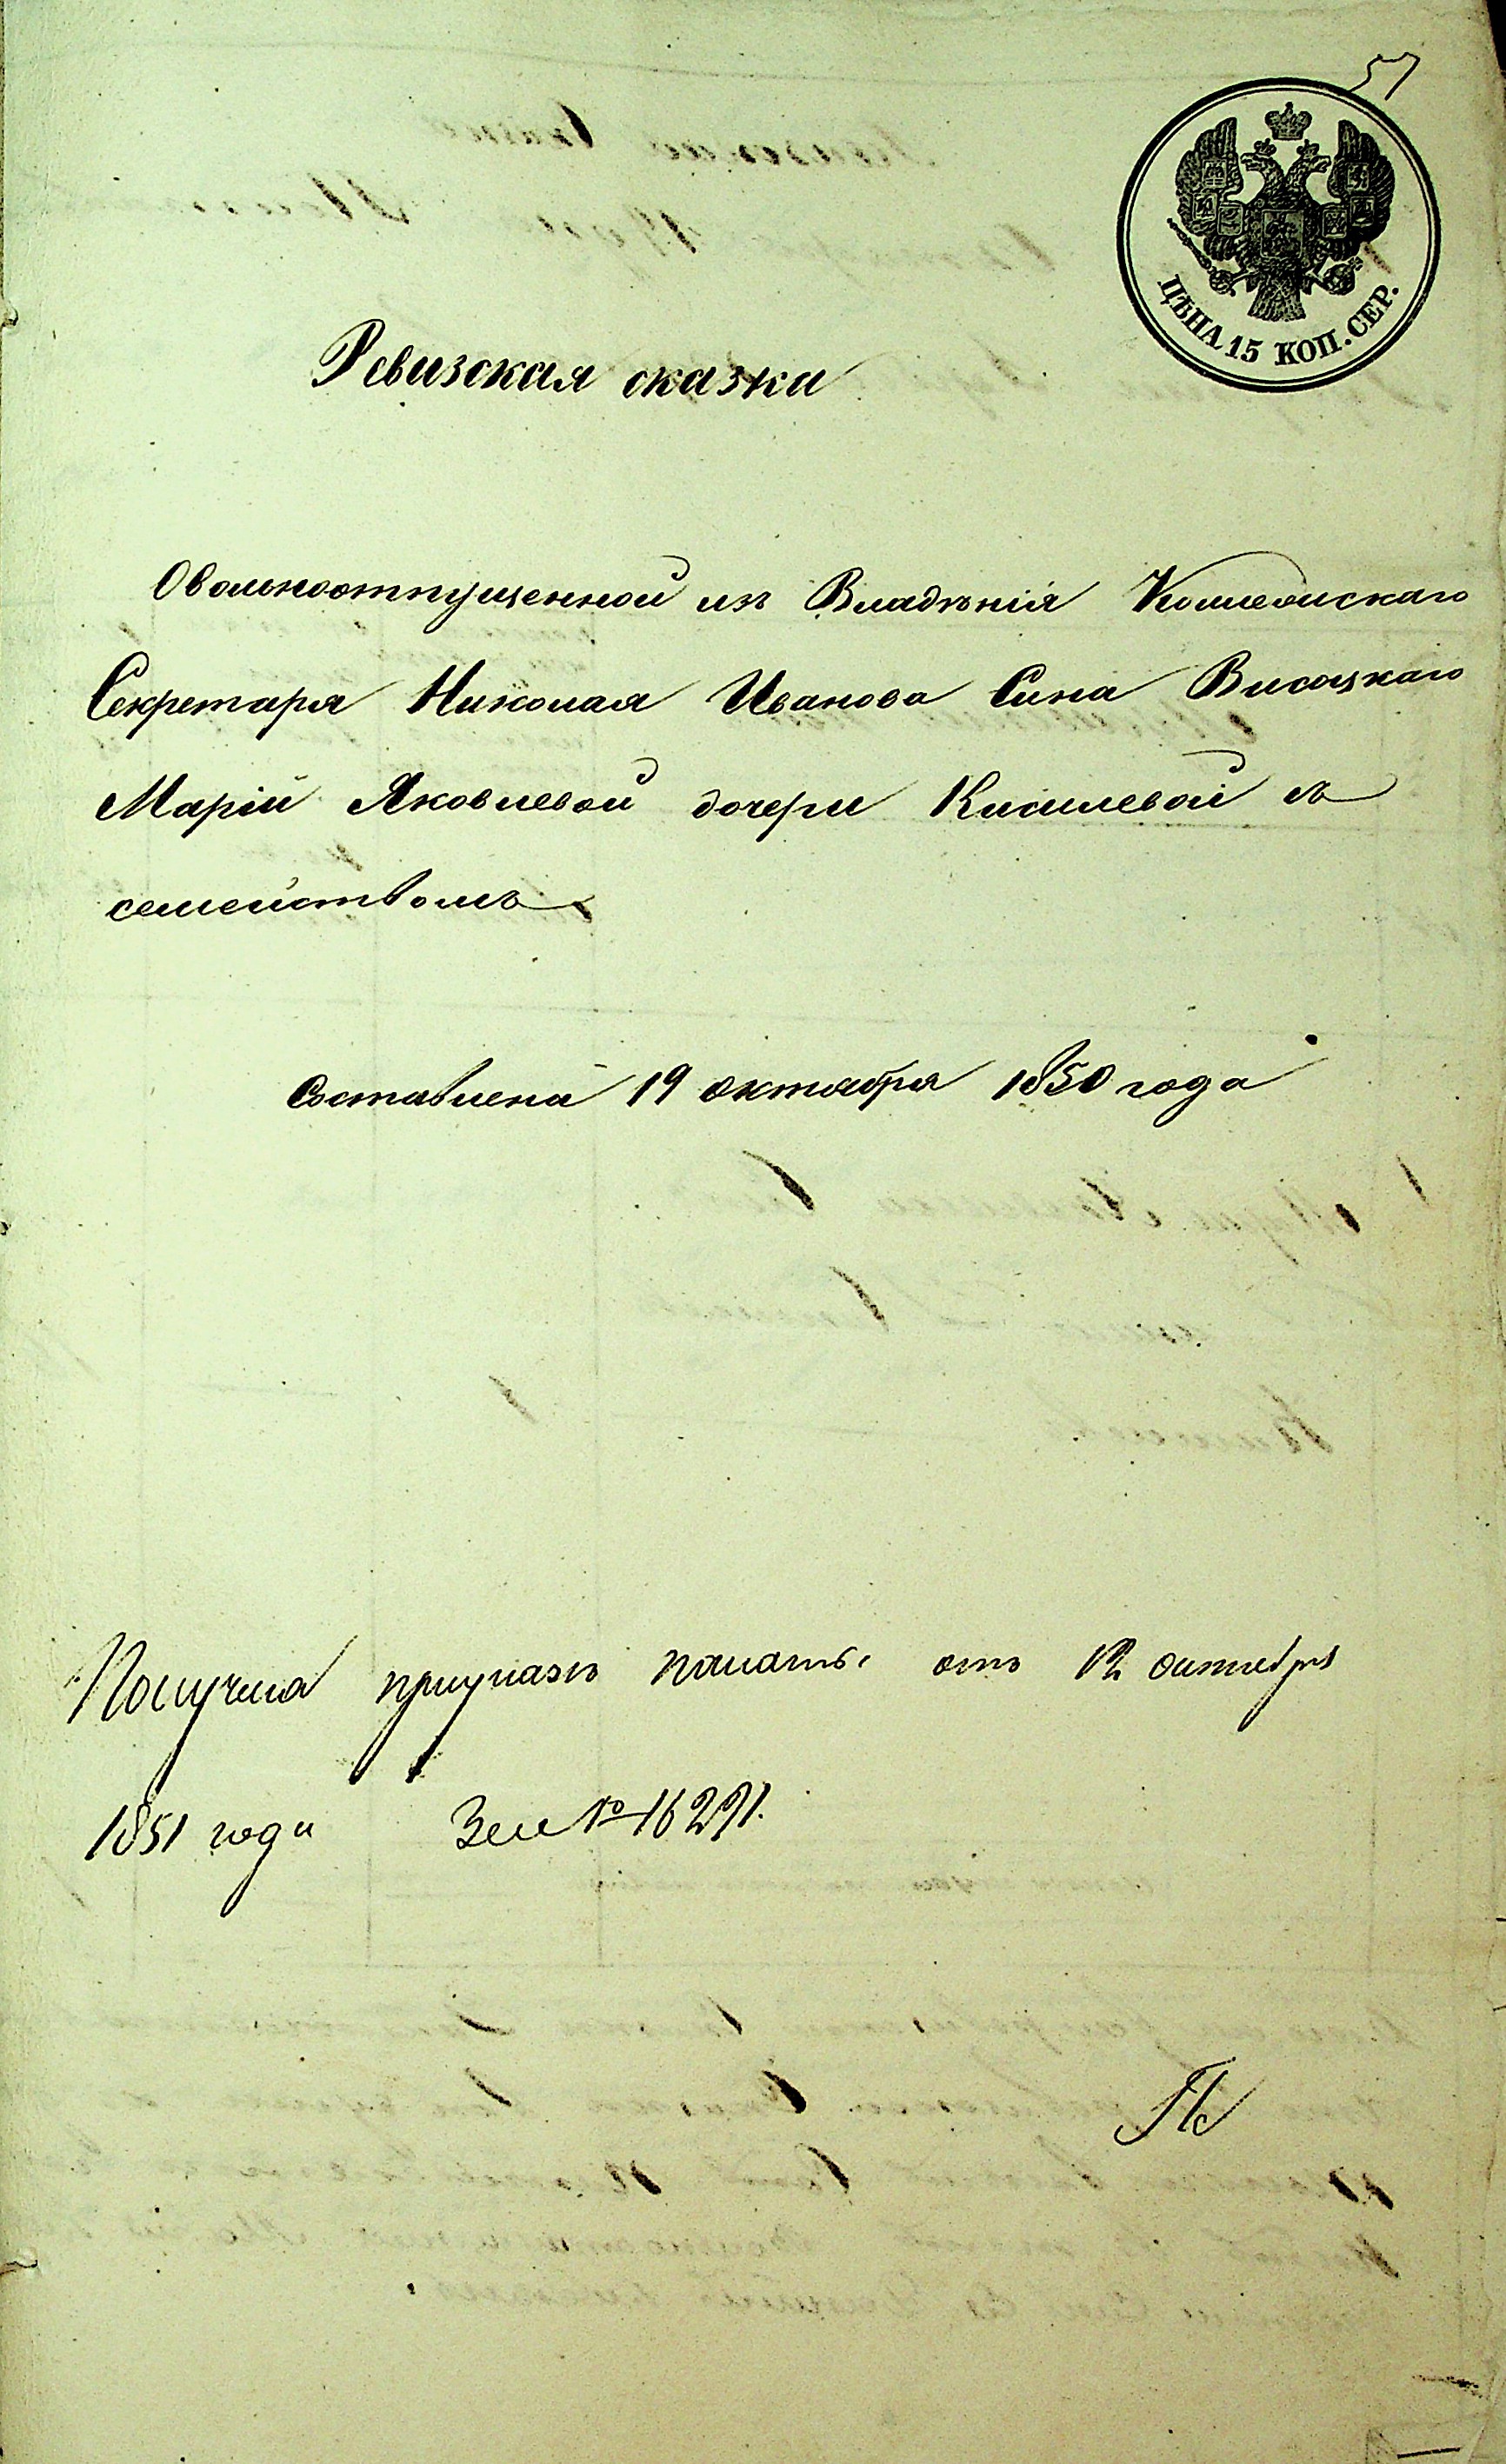 57
ЦѢНА 15 КОП. СЕР.
Ревизская сказка
О вольноотпущенной изъ Владѣнія Коллежискаго
Секретаря Николая Иванова Сина Висоцкаго
Марiй Яковлевой дочери Кисилевой съ
семействомъ
Составлена 19 октабря 1850 года
Получила приуказѣ палаты отъ 12 октебря
1851 года За № 16291.